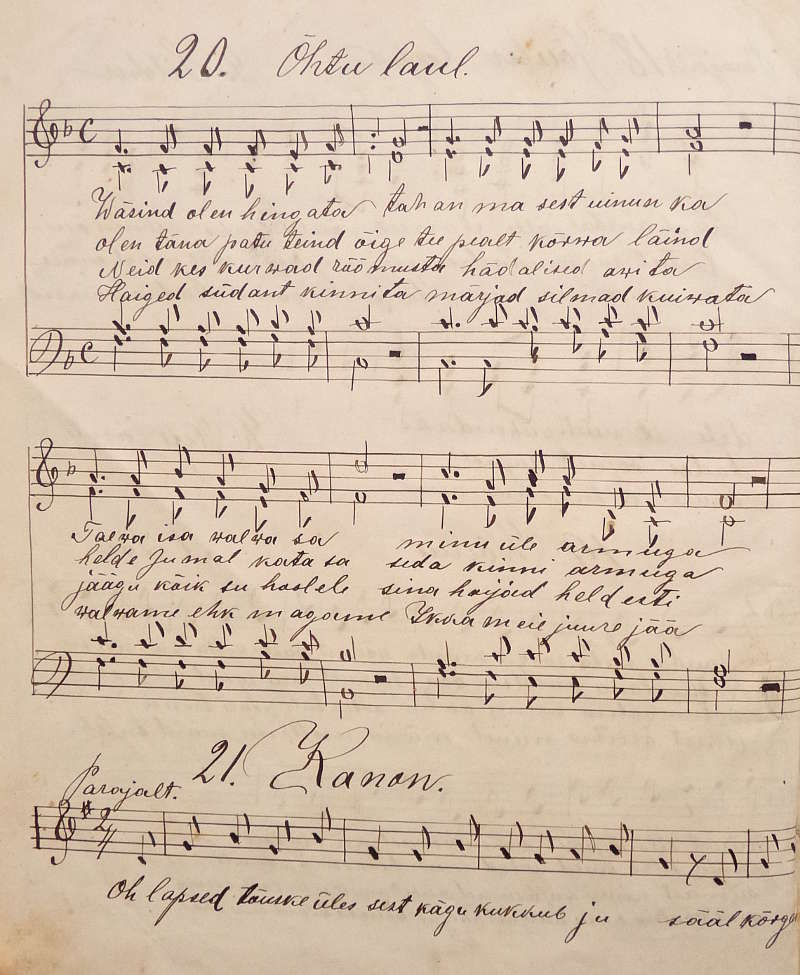 20. Õhtu laul.
Wäsind olen hingata tahan ma sest uinun ka
olen täna patu teind õige tee pealt kõrwa läind
Neid kes kurwad rõõmusta hädalised awita
Haiged südant kinnita märjad silmad kuiwata
Taewa isa walwa sa minu üle armuga
helde Jumal kata sa seda kinni armuga
jäägu kõik su hoolele sina hoijad heldesti
walwame ehk magame Ikka meie juure jää
21. Kanon.
Parajalt.
Oh lapsed tõuske üles sest kägu kukkub ju sääl kõrge